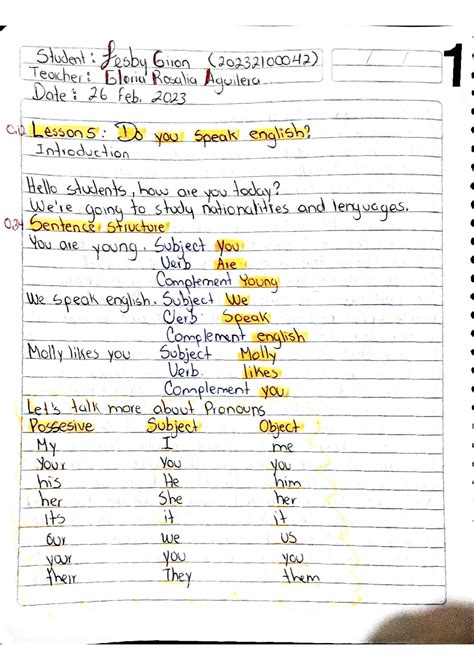 Student: Lesby Giron (20232100042)
Teacher: Gloria Rosalia Aguilera
Date: 26 Feb. 2023
1
0.12 Lesson 5: Do you speak english?
Introduction
Hello students, how are you today?
We're going to study nationalities and lenguages.
0.34 Sentence Structure
You are young. Subject You
Verb Are
Complement Young
We speak english. Subject We
Verb Speak
Complement english
Molly likes you Subject Molly
Verb. likes
Complement you
Let's talk more about Pronouns
Possesive Subject Object
My I me
Your You you
his He him
her She her
Its it it
our we us
your you you
their They them